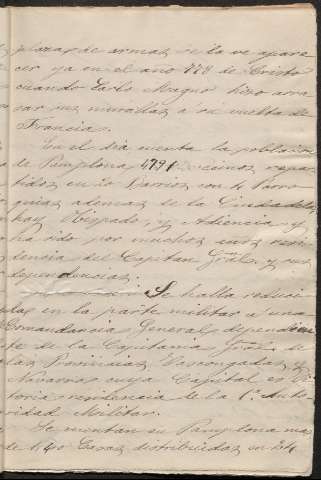 plazas de armas se la ve apare
cer ya en el año 778 de Cristo
cuando Carlo Magno hizo arra
sar sus murallas a su vuelta de
Francia.
En el dia cuenta la poblacion
de Pamplona 4791 vecinos repar
tidos en 20 Barrios con 4 Parro
quias ademas de la Ciudadela,
hay Obispado, y Audiencia y
ha sido por muchos años resi
dencia del Capitan Gral. y sus
dependencias.
Se halla reduci
das en la parte militar a una
Comandancia General dependien
te de la Capitania Gral. de
las Provincias Vascongadas y
Navarra cuya Capital es Vi
toria residencia de la 1ª Auto
ridad Militar.
Se cuentan en Pamplona mas
de 1.440 Casas distribuidas en